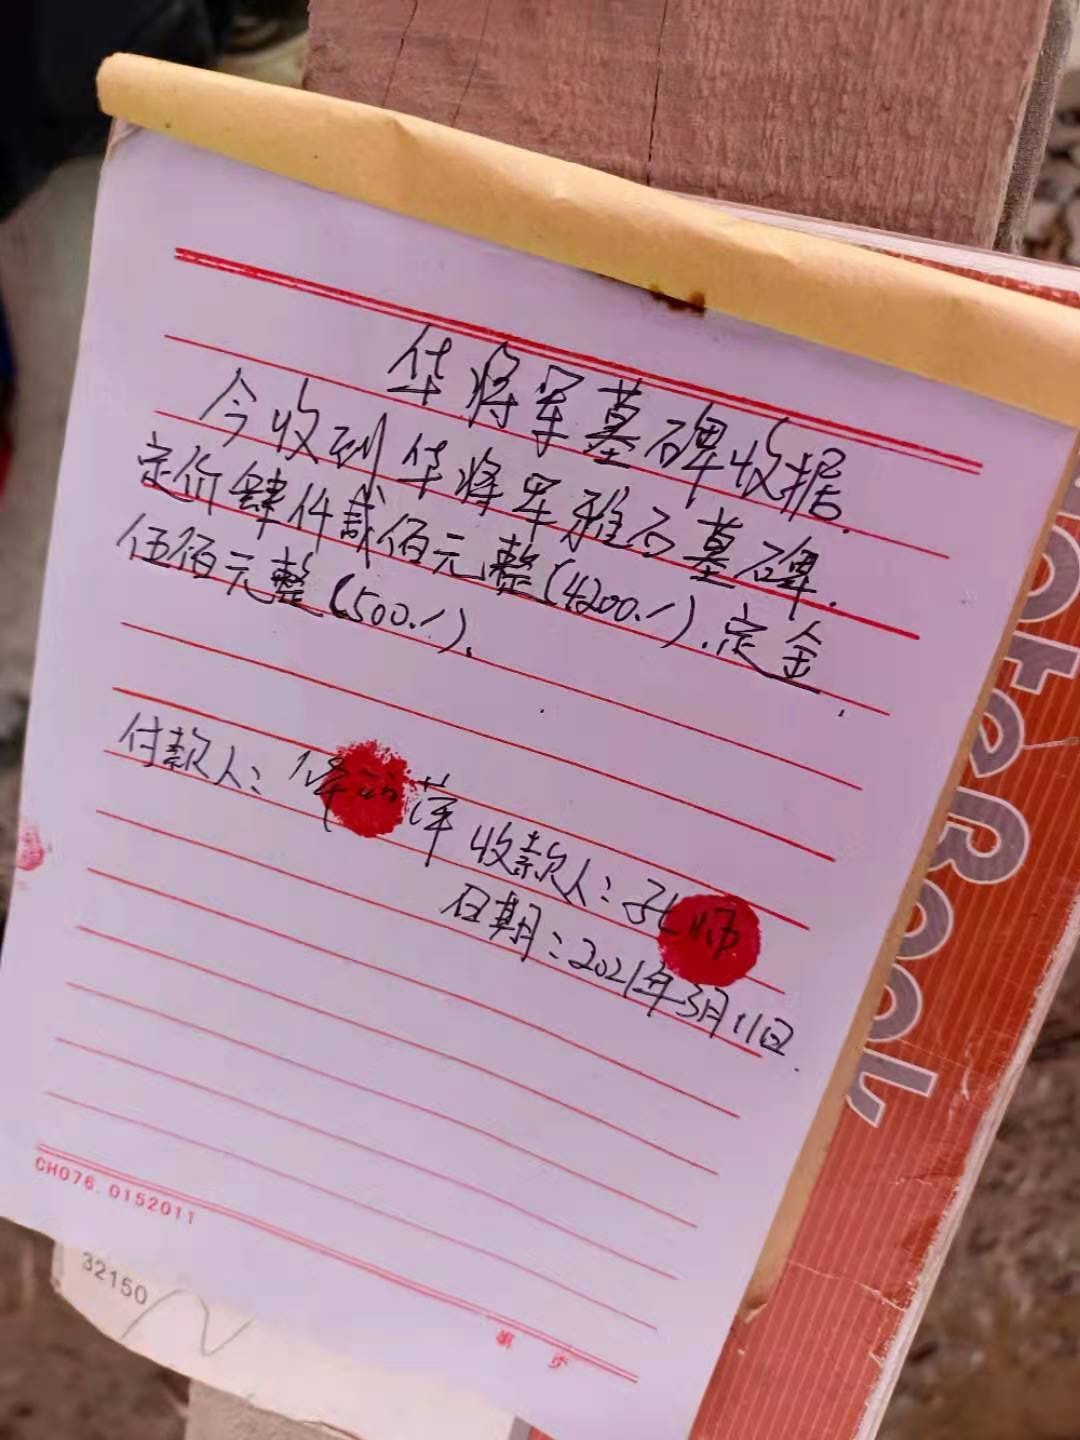 华将军墓碑收据.
今收到华将军雅石墓碑.
定价肆仟贰佰元整(4200./).定金
伍佰元整(500./).
付款人: 萍 收款人: 孔师
日期: 2021年3月11日.
CH076.0152011
32150
第 页
NoteBook